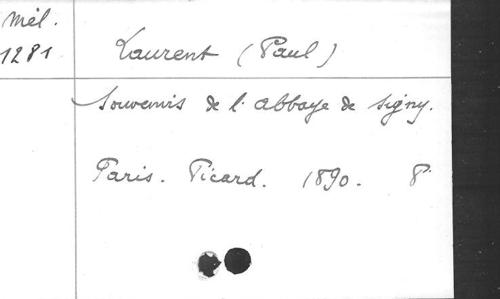 Mél.
1281
Laurent (Paul)
Souvenirs de l'abbaye de Signy.
Paris. Picard. 1890. 8°